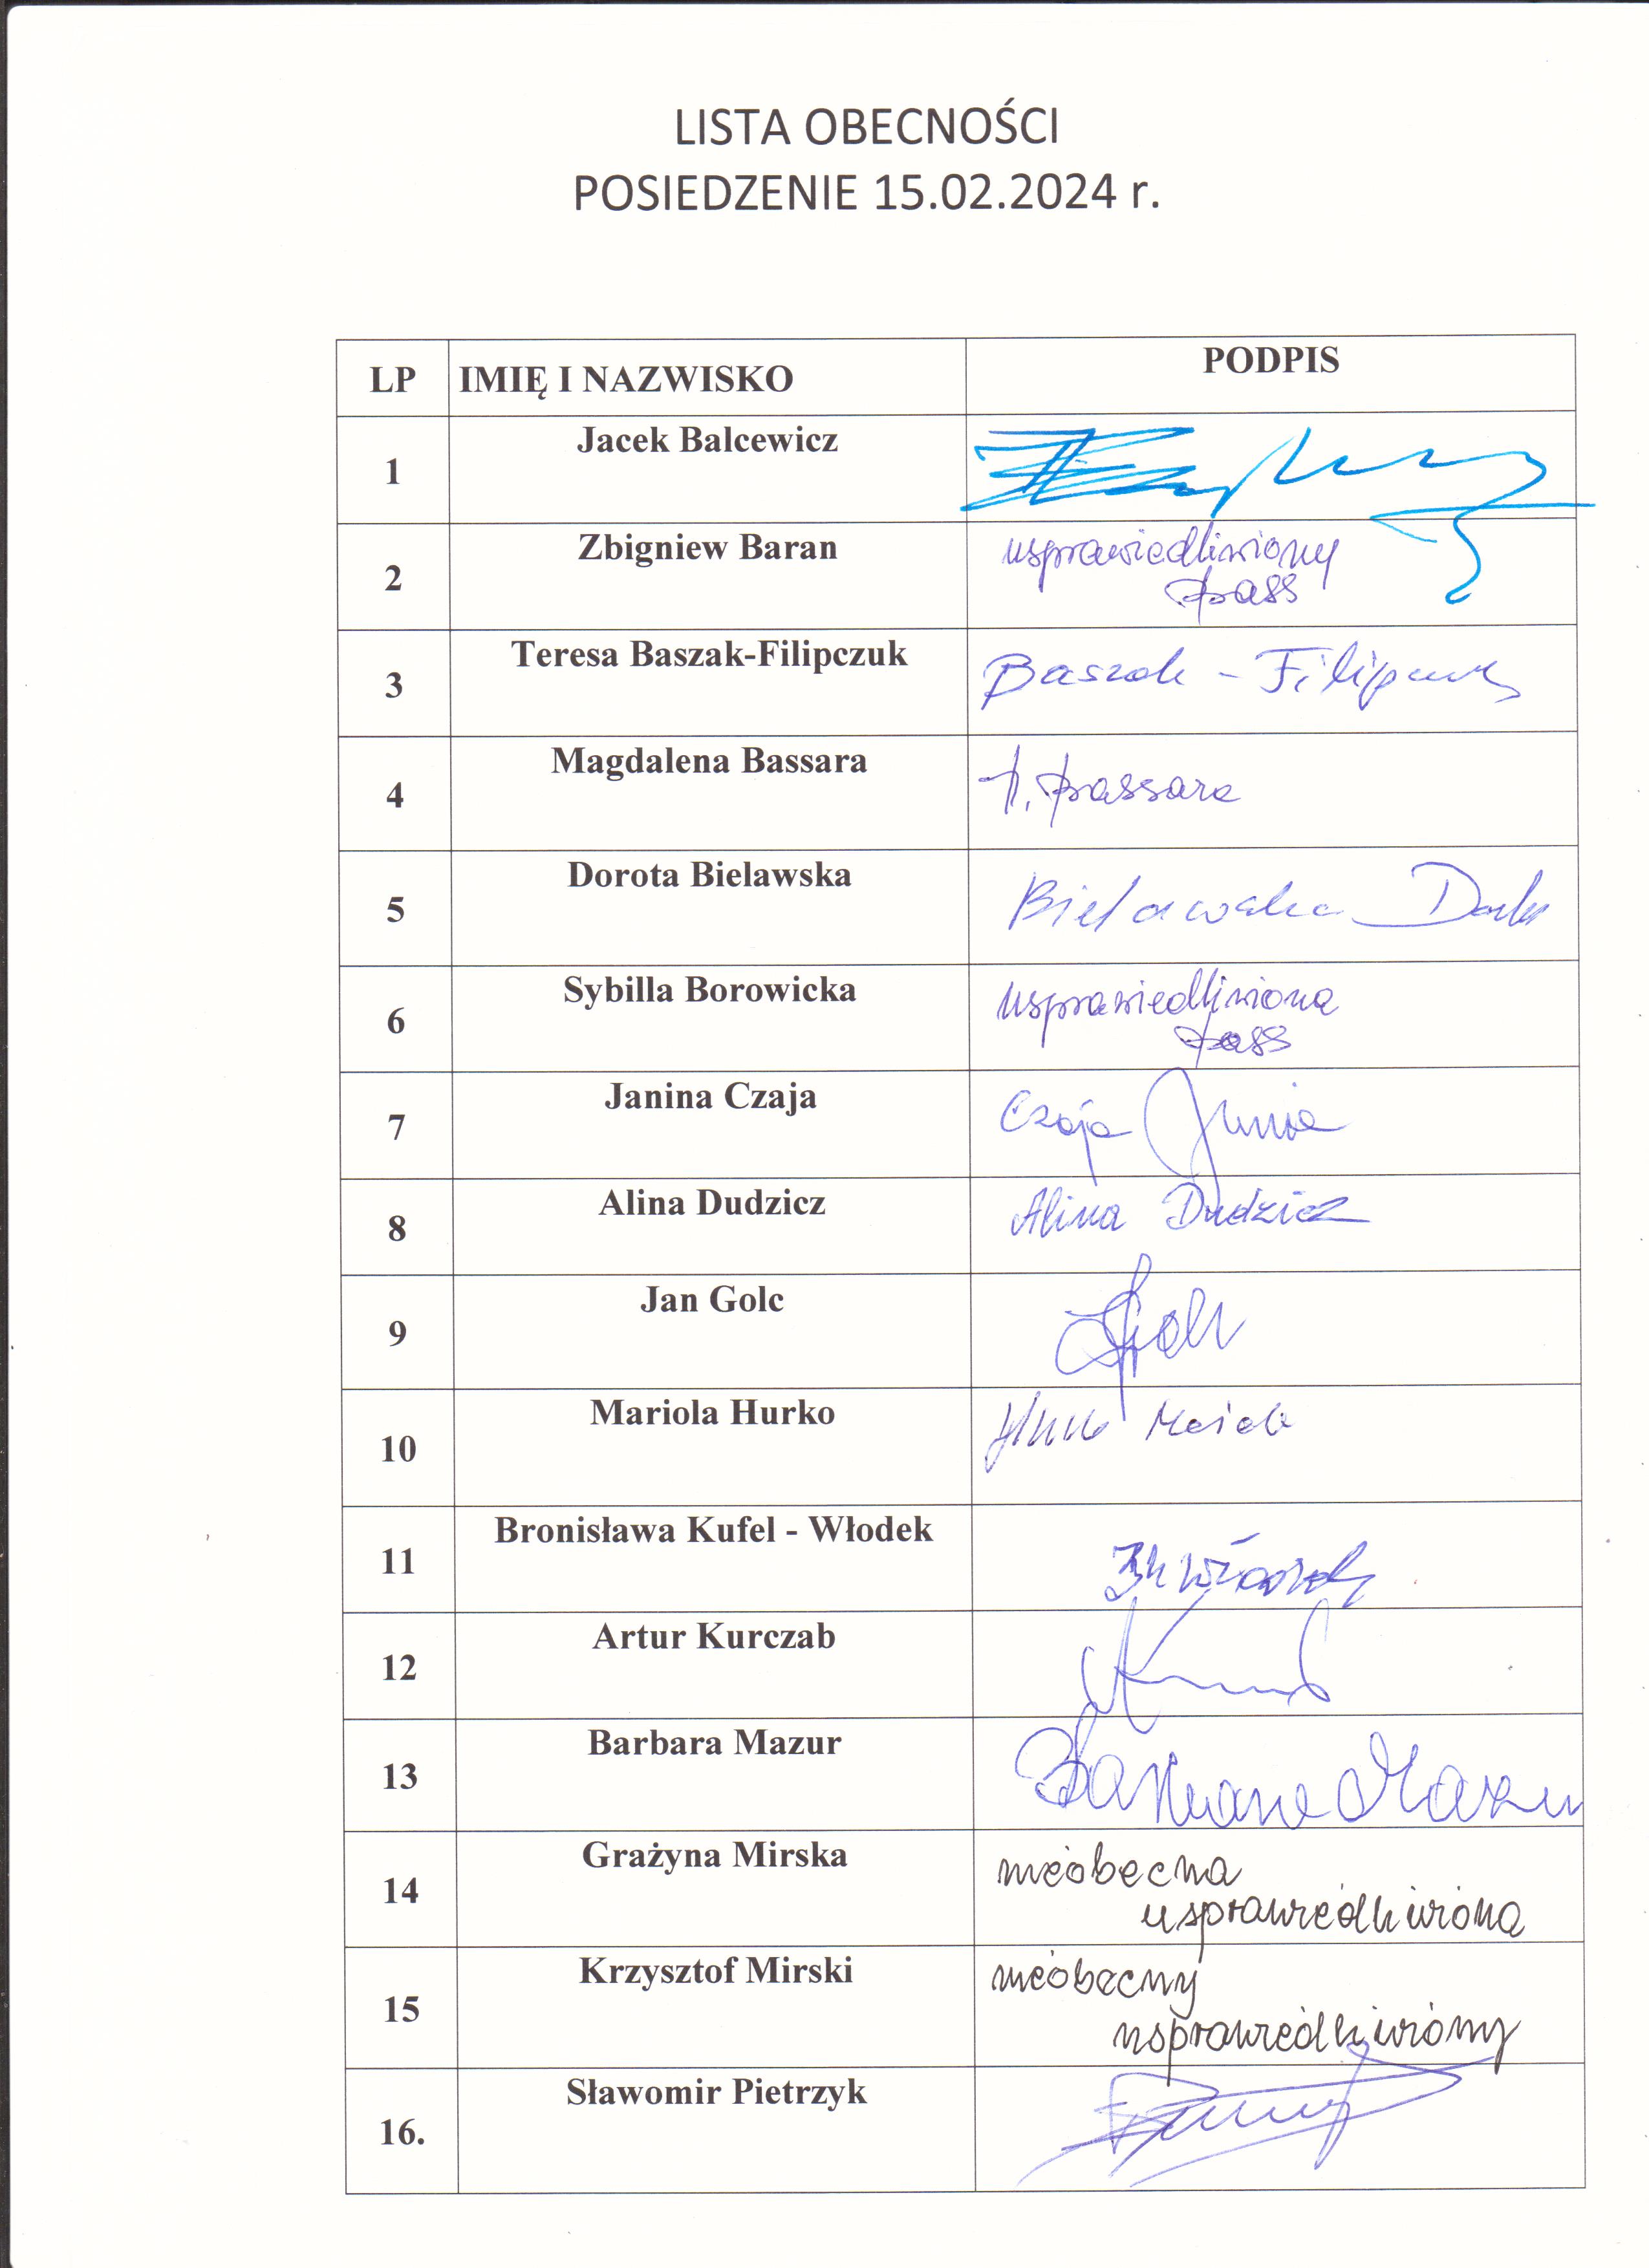 LISTA OBECNOŚCI
POSIEDZENIE 15.02.2024 r.
LP IMIĘ I NAZWISKO PODPIS
1 Jacek Balcewicz
2 Zbigniew Baran usprawiedliwiony
Bass
3 Teresa Baszak-Filipczuk Baszak - Filipczuk
4 Magdalena Bassara M. Bassara
5 Dorota Bielawska Bielawska Dorota
6 Sybilla Borowicka usprawiedliwiona
Bass
7 Janina Czaja Czaja Janina
8 Alina Dudzicz Alina Dudzicz
9 Jan Golc
10 Mariola Hurko
11 Bronisława Kufel - Włodek BKWłodek
12 Artur Kurczab
13 Barbara Mazur Barbara Mazur
14 Grażyna Mirska nieobecna
usprawiedliwiona
15 Krzysztof Mirski nieobecny
usprawiedliwiony
16. Sławomir Pietrzyk